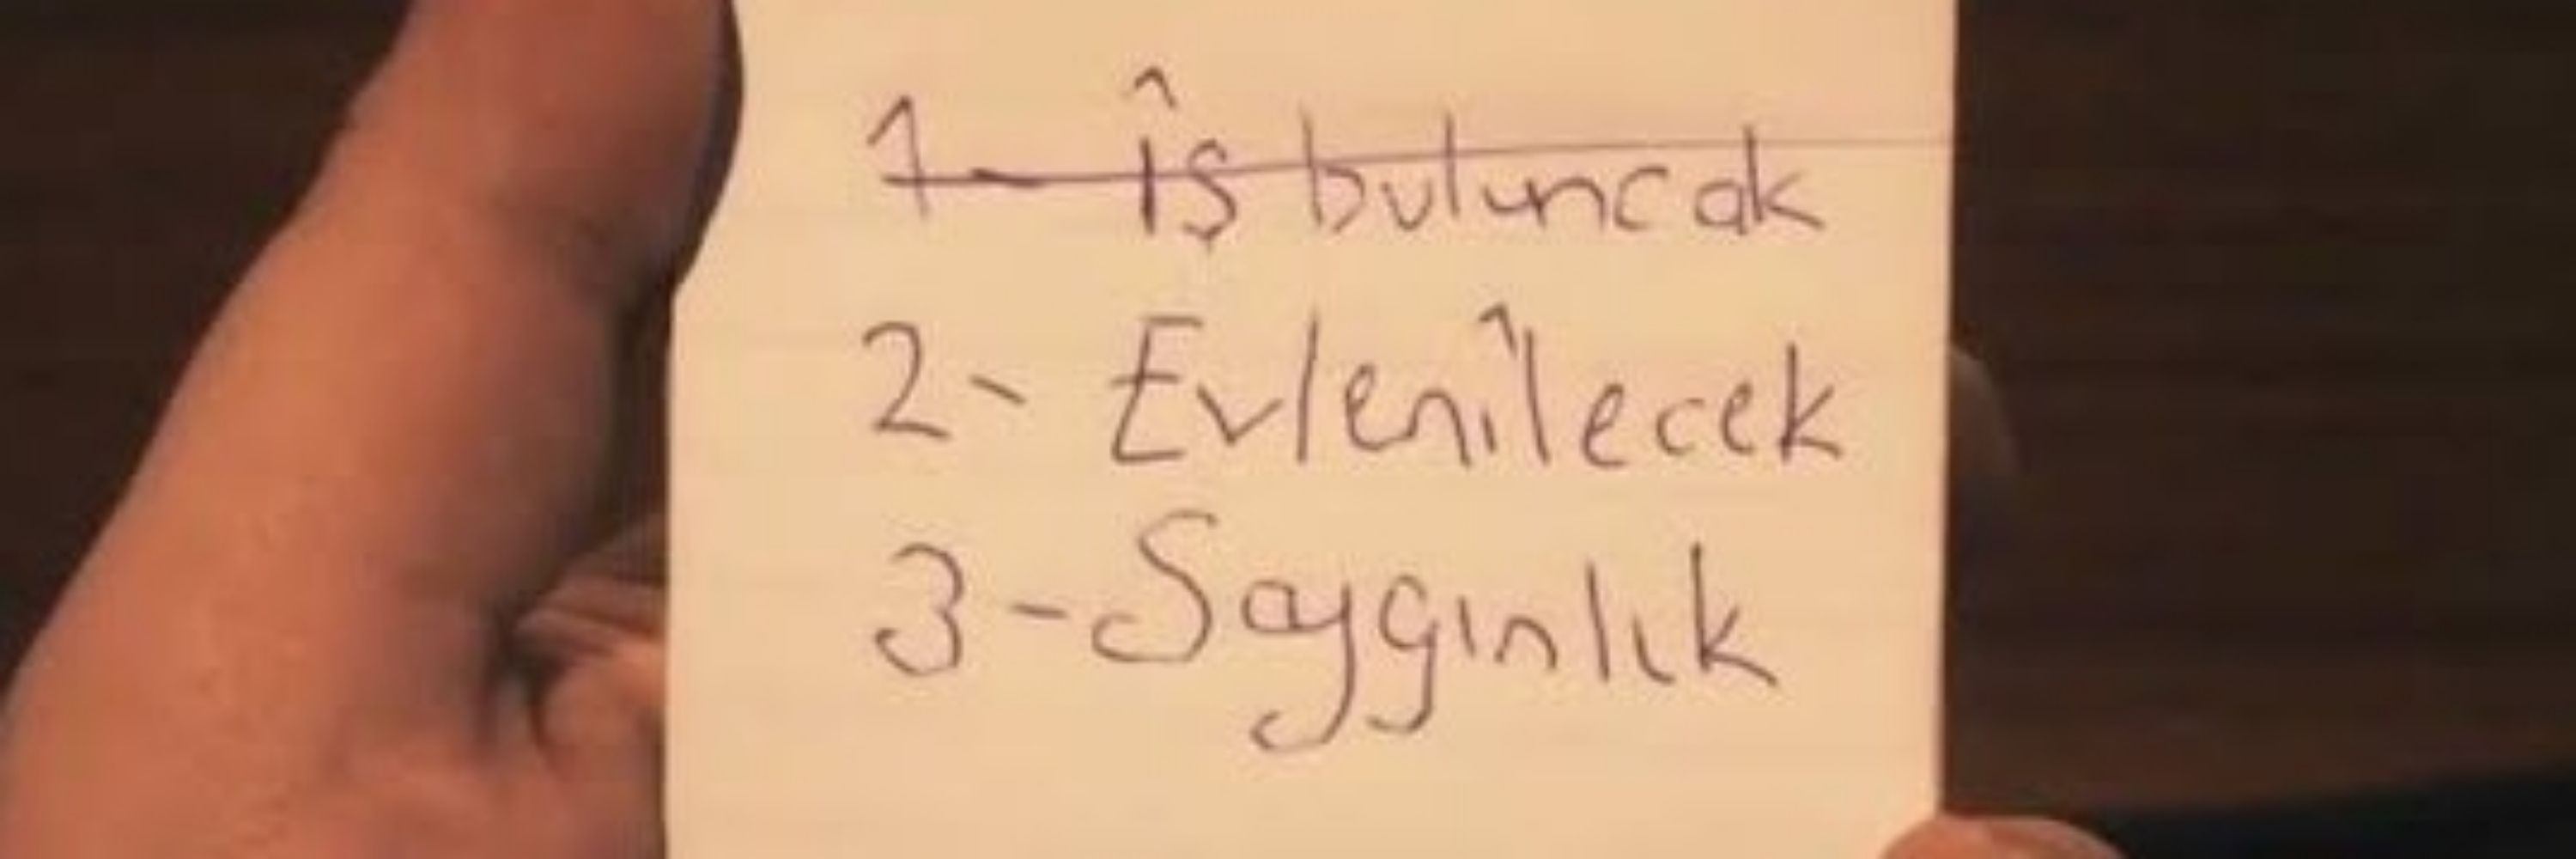 1- îş buluncak
2- Evlenîlecek
3- Saygınlık